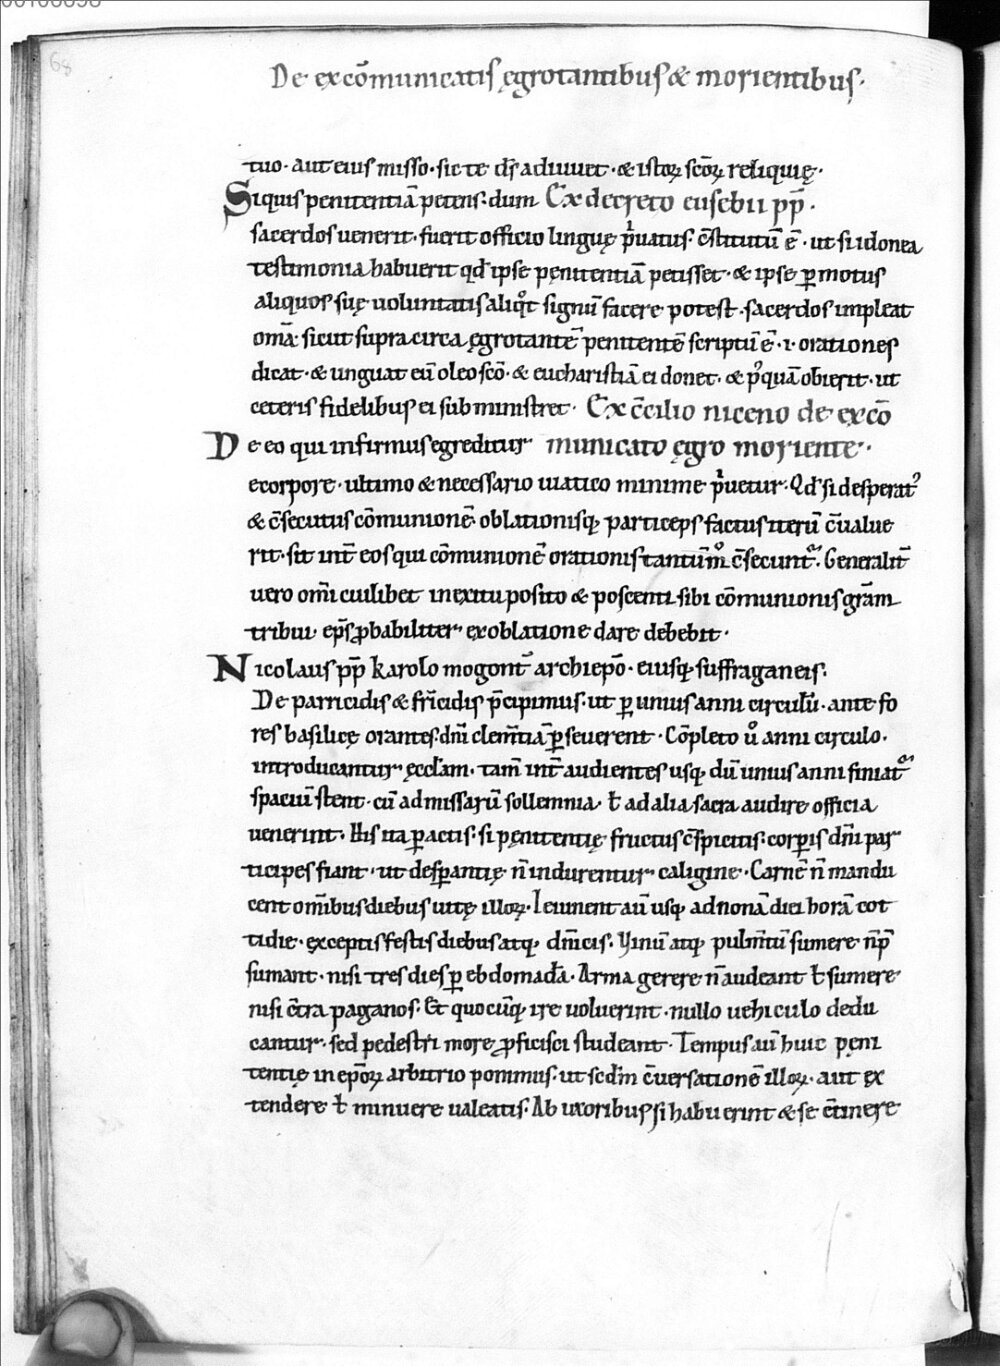 68
De excõmunicatis ęgrotantibus & morientibus.
tuo. aut eius misso. sic te d̄s adiuuet. & istoꝝ scōꝝ reliquię.
Siquis penitentiā petens. dum Ex decreto eusebii pp̄.
sacerdos uenerit. fuerit officio linguę pͥuatus. c̄stitutū ē. ut si idonea
testimonia habuerit qd̄ ipse pęnitentiā petisset. & ipse ꝑ motus
aliquos suę uoluntatis aliqͦt signū facere potest. sacerdos impleat
om̄a. sicut supra circa ęgrotantē penitentē scriptū ē. i. orationes
dicat. & unguat eū oleo scō. & eucharistiā ei donet. & pꝰquā obierit. ut
ceteris fidelibus ei subministret. Ex c̄cilio niceno de excō
De eo qui infirmus egreditur municato ęgro moriente.
e corpore. ultimo & necessario uiatico minime pͥuetur. Qd̄ si desperatꝰ
& c̄secutus cōmunionē. oblationisq; particeps factus iterū c̄ualue
rit. sit int̄ eos qui cōmunionē orationis tantūmͦ c̄secunt̄ᷓ. Generalit̄
uero om̄i cuilibet in exitu posito & poscenti sibi cōmunionis grām
tribui. ep̄s ꝓbabiliter ex oblatione dare debebit.
Nicolaus pp̄ karolo mogont̄ archiepō. eiusq; suffraganeis.
De parricidis & fr̄icidis p̄cipimus. ut ꝑ unius anni circulū. ante fo
res basilicę orantes dn̄i clem̄tiā ꝑseuerent. Cōpleto uͦ anni circulo.
introducantur ęccłam. tam̄ int̄ audientes usq; dū unius anni finiatᷓ
spaciū stent. cū ad missarū sollemnia. ł ad alia sacra audire officia
uenerint. His ita ꝑactis. si pęnitentię fructus c̄spicitis. corꝑis dn̄i par
ticipes fiant. ut desꝑantię n̄ indurentur caligine. Carnē n̄ mandu
cent om̄ibus diebus uitę illoꝝ. Ieiunent aū usq; ad nonā diei horā cot
tidie. exceptis festis diebus atq; dn̄icis. Vinū atq; pulm̄tū sumere n̄ p̄
sumant. nisi tres dies ꝑ ebdomadā. Arma gerere n̄ audeant ł sumere
nisi c̄tra paganos. Et quocūq; ire uoluerint. nullo uehiculo dedu
cantur. sed pedestri more ꝓficisci studeant. Tempus aū huic pęni
tentię in ep̄oꝝ arbitrio ponimus. ut scd̄m c̄uersationē illoꝝ. aut ex
tendere ł minuere ualeatis. Ab uxoribus si habuerint & se c̄tinere